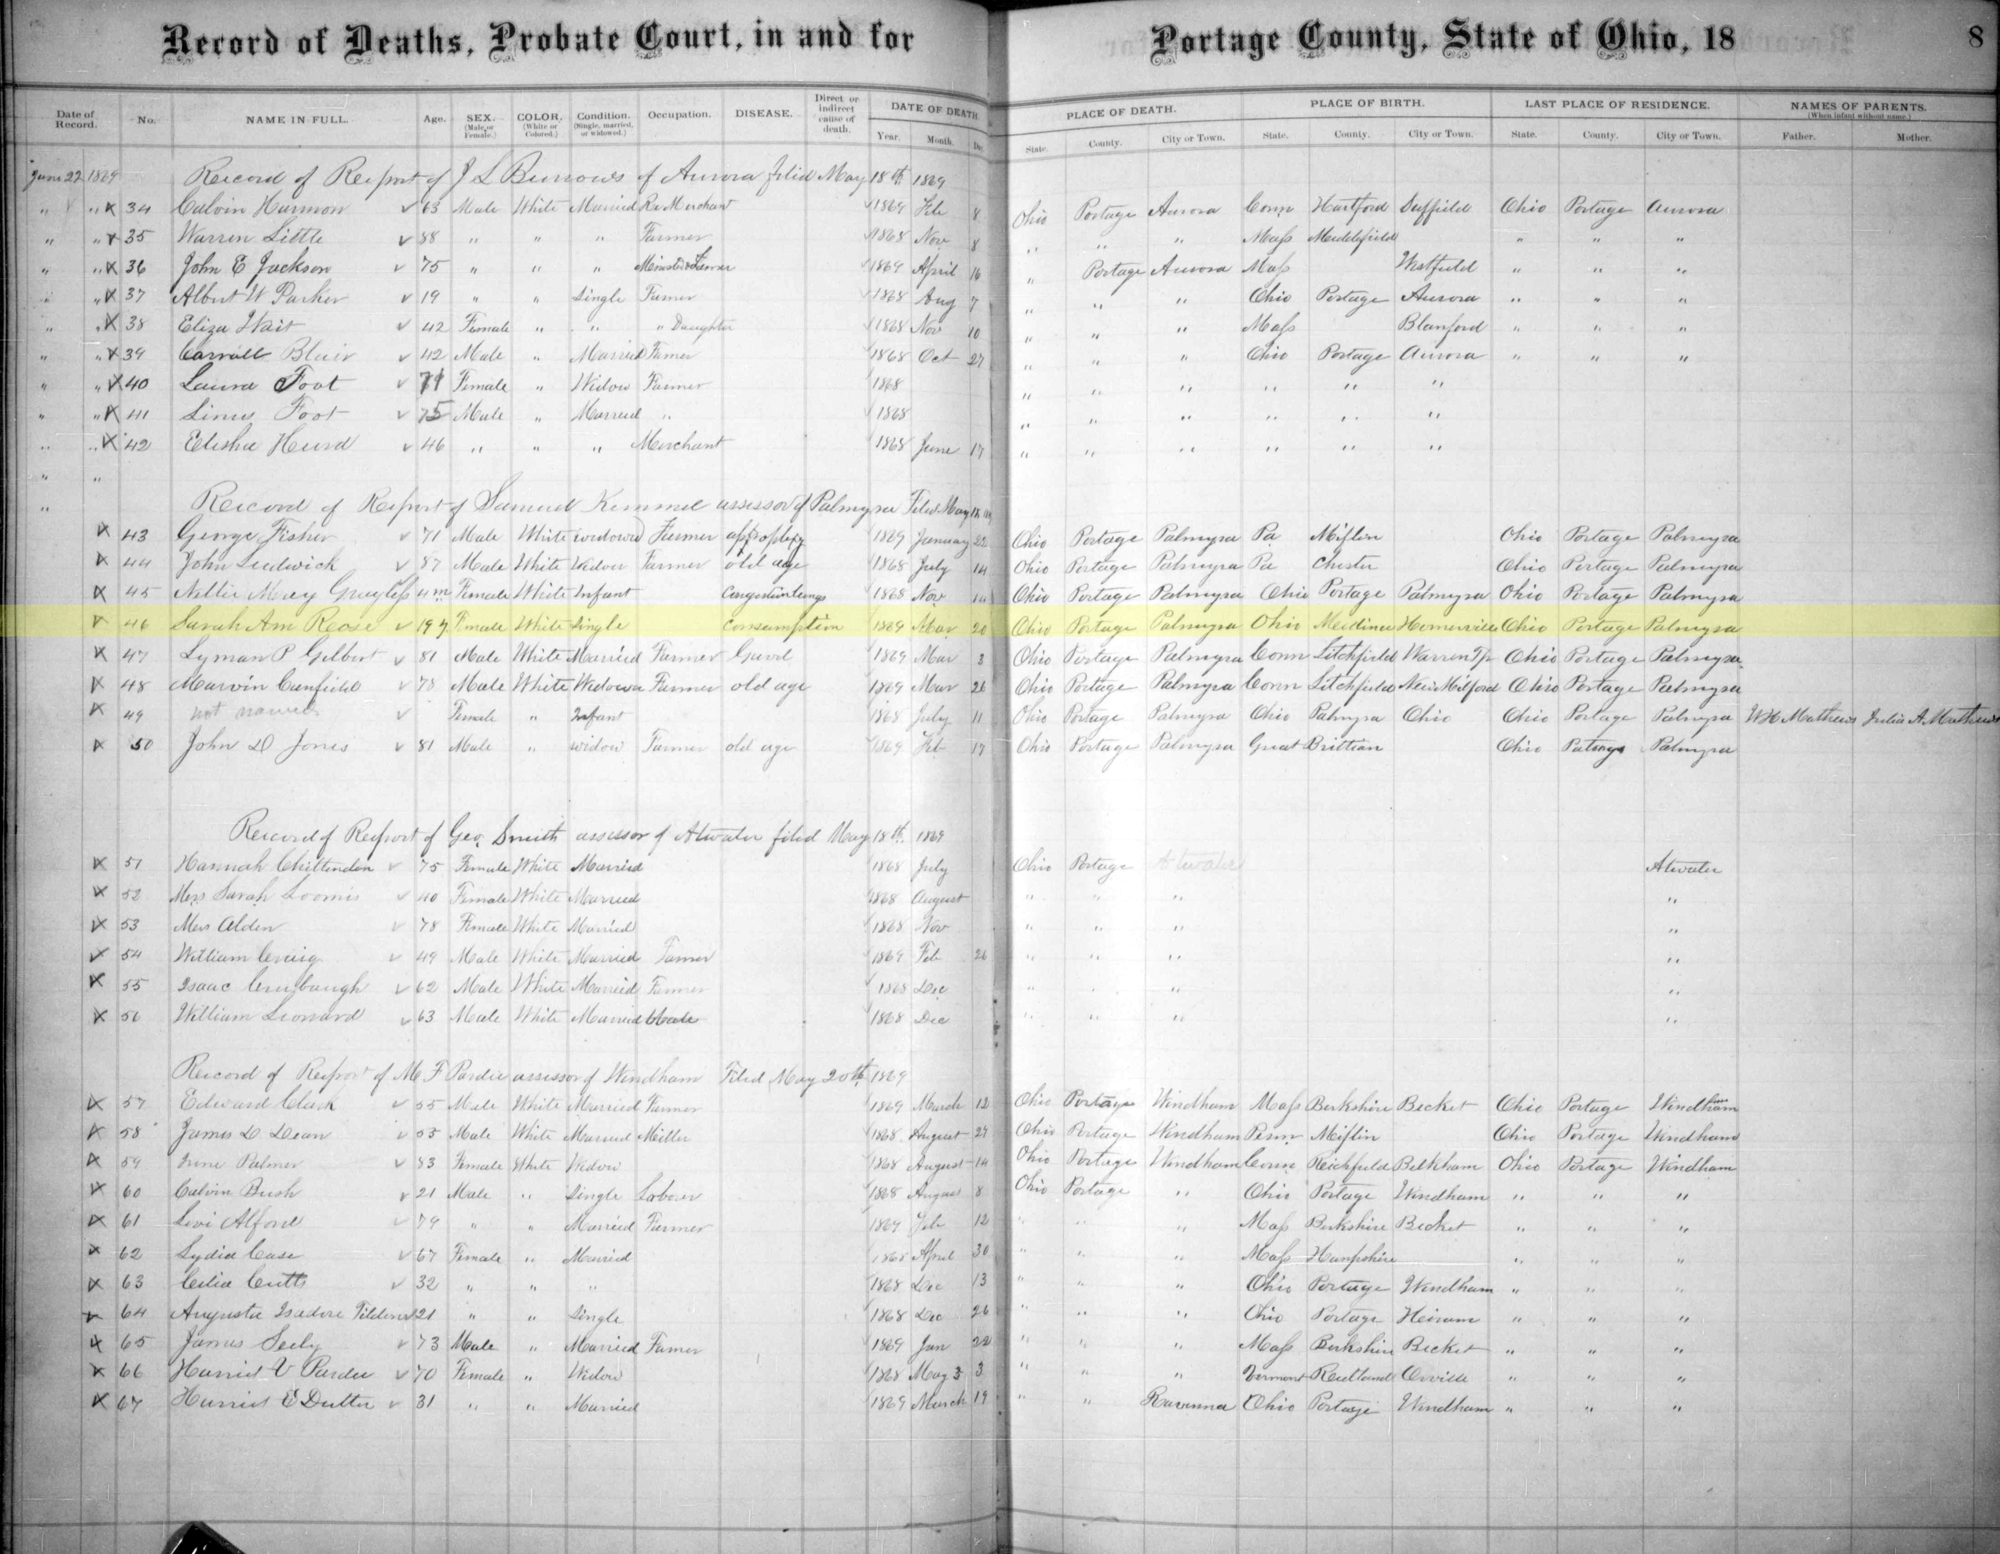 Record of Deaths, Probate Court, in and for Portage County, State of Ohio, 18 8
Date of Record. No. NAME IN FULL. Age. SEX. (Male or Female.) COLOR. (White or Colored.) Condition. (Single, married, or widowed.) Occupation. DISEASE. Direct or indirect cause of death. DATE OF DEATH Year. Month. Day. PLACE OF DEATH. State. County. City or Town. PLACE OF BIRTH. State. County. City or Town. LAST PLACE OF RESIDENCE. State. County. City or Town. NAMES OF PARENTS. (When infant without name.) Father. Mother.
June 22 1869 Record of Report of J L Burrows of Aurora filed May 18th 1869
" " 34 Calvin Harmon 63 Male White Married Merchant 1869 Feb 8 Ohio Portage Aurora Conn Hartford Suffield Ohio Portage Aurora
" " 35 Warren Little 88 " " " Farmer 1868 Nov 8 " " " Mass Middlefield " " "
" " 36 John E Jackson 75 " " " 1869 April 16 " Portage Aurora Mass Westfield " " "
" " 37 Albert W Parker 19 " " Single Farmer 1868 Aug 7 " " " Ohio Portage Aurora " " "
" " 38 Eliza Wait 42 Female " " " Daughter 1868 Nov 10 " " " Mass Blanford " " "
" " 39 Carroll Blair 42 Male " Married Farmer 1868 Oct 27 " " " Ohio Portage Aurora " " "
" " 40 Laura Foot 71 Female " Widow Farmer 1868 " " " " " "
" " 41 Linus Foot 75 Male " Married " 1868 " " " " " "
" " 42 Elisha Hurd 46 " " " Merchant 1868 June 17 " " " " " "
" "
" Record of Report of Samuel Kimmel assessor of Palmyra Filed May
43 George Fisher 71 Male White widowd Farmer 1869 January 22 Ohio Portage Palmyra Pa Miflin Ohio Portage Palmyra
44 John Ludwick 87 Male White Widow Farmer old age 1868 July 14 Ohio Portage Palmyra Pa Chester Ohio Portage Palmyra
45 Nellie 4m Female White Infant 1868 Nov 14 Ohio Portage Palmyra Ohio Portage Palmyra Ohio Portage Palmyra
46 Sarah Ann Reose 19 y Female White Single consumption 1869 Mar 20 Ohio Portage Palmyra Ohio Medina Homerville Ohio Portage Palmyra
47 Lyman P Gilbert 81 Male White Married Farmer 1869 Mar 3 Ohio Portage Palmyra Conn Litchfield Warren Tp Ohio Portage Palmyra
48 Marvin Canfield 78 Male White Widower Farmer old age 1869 Mar 26 Ohio Portage Palmyra Conn Litchfield New Milford Ohio Portage Palmyra
49 not named Female " Infant 1868 July 11 Ohio Portage Palmyra Ohio Palmyra Ohio Ohio Portage Palmyra W H Mathews Julia A. Mathews
50 John D Jones 81 Male " widow Farmer old age 1869 Feb 17 Ohio Portage Palmyra Great Brittian Ohio Palmyra
Record of Report of Geo. Smith assessor of Atwater filed May 18th. 1869
51 Hannah Chittenden 75 Female White Married 1868 July Ohio Portage Atwater Atwater
52 Mrs Sarah Loomis 40 Female White Married 1868 August " " " "
53 Mrs Alden 78 Female White Married 1868 Nov " " " "
54 William Craig 49 Male White Married Farmer 1869 Feb 26 " " " "
55 Isaac 62 Male White Married Farmer 1868 Dec " " " "
56 William Leonard 63 Male White Married 1868 Dec " " " "
Record of Report of M F Pardee assessor of Windham Filed May 20th 1869
57 Edward Clark 55 Male White Married Farmer 1869 March 12 Ohio Portage Windham Mass Berkshire Becket Ohio Portage Windham
58 James D Dean 55 Male White Married Miller 1868 August 27 Ohio Portage Windham Penn Miflin Ohio Portage Windham
59 Irene Palmer 83 Female White Widow 1868 August 14 Ohio Portage Windham Conn Ohio Portage Windham
60 Calvin Bush 21 Male " Single Laborer 1868 August 8 Ohio Portage " Ohio Portage Windham " " "
61 Levi Alford 79 " " Married Farmer 1869 Feb 12 " " " Mass Berkshire Becket " " "
62 Lydia Case 67 Female " Married 1868 April 30 " " " Mass Hampshire " " "
63 Celia Cutts 32 " " " 1868 Dec 13 " " " Ohio Portage Windham " " "
64 Augusta Isadore Tilden 21 " " Single 1868 Dec 26 " " " Ohio Portage Heiram " " "
65 James Seely 73 Male " Married Farmer 1869 Jan 22 " " " Mass Berkshire Becket " " "
66 Harriet V Pardee 70 Female " Widow 1868 May 3 3 " " " Vermont Rutland Orville " " "
67 Harriet E Dutter 31 " " Married 1869 March 19 " " Ravenna Ohio Portage Windham " " "